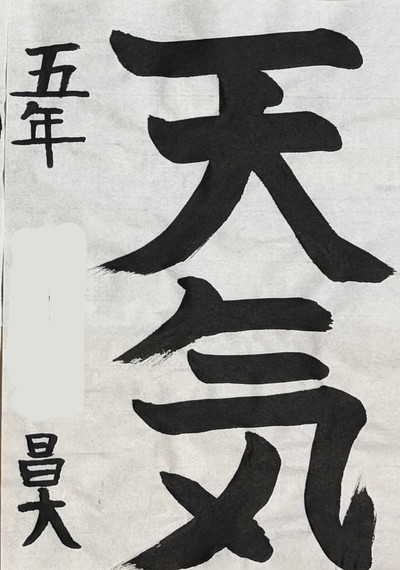 天気
五年
昌大